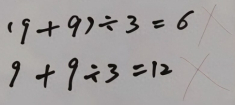 (9 + 9) ÷ 3 = 6 ×
9 + 9 ÷ 3 = 12 ×